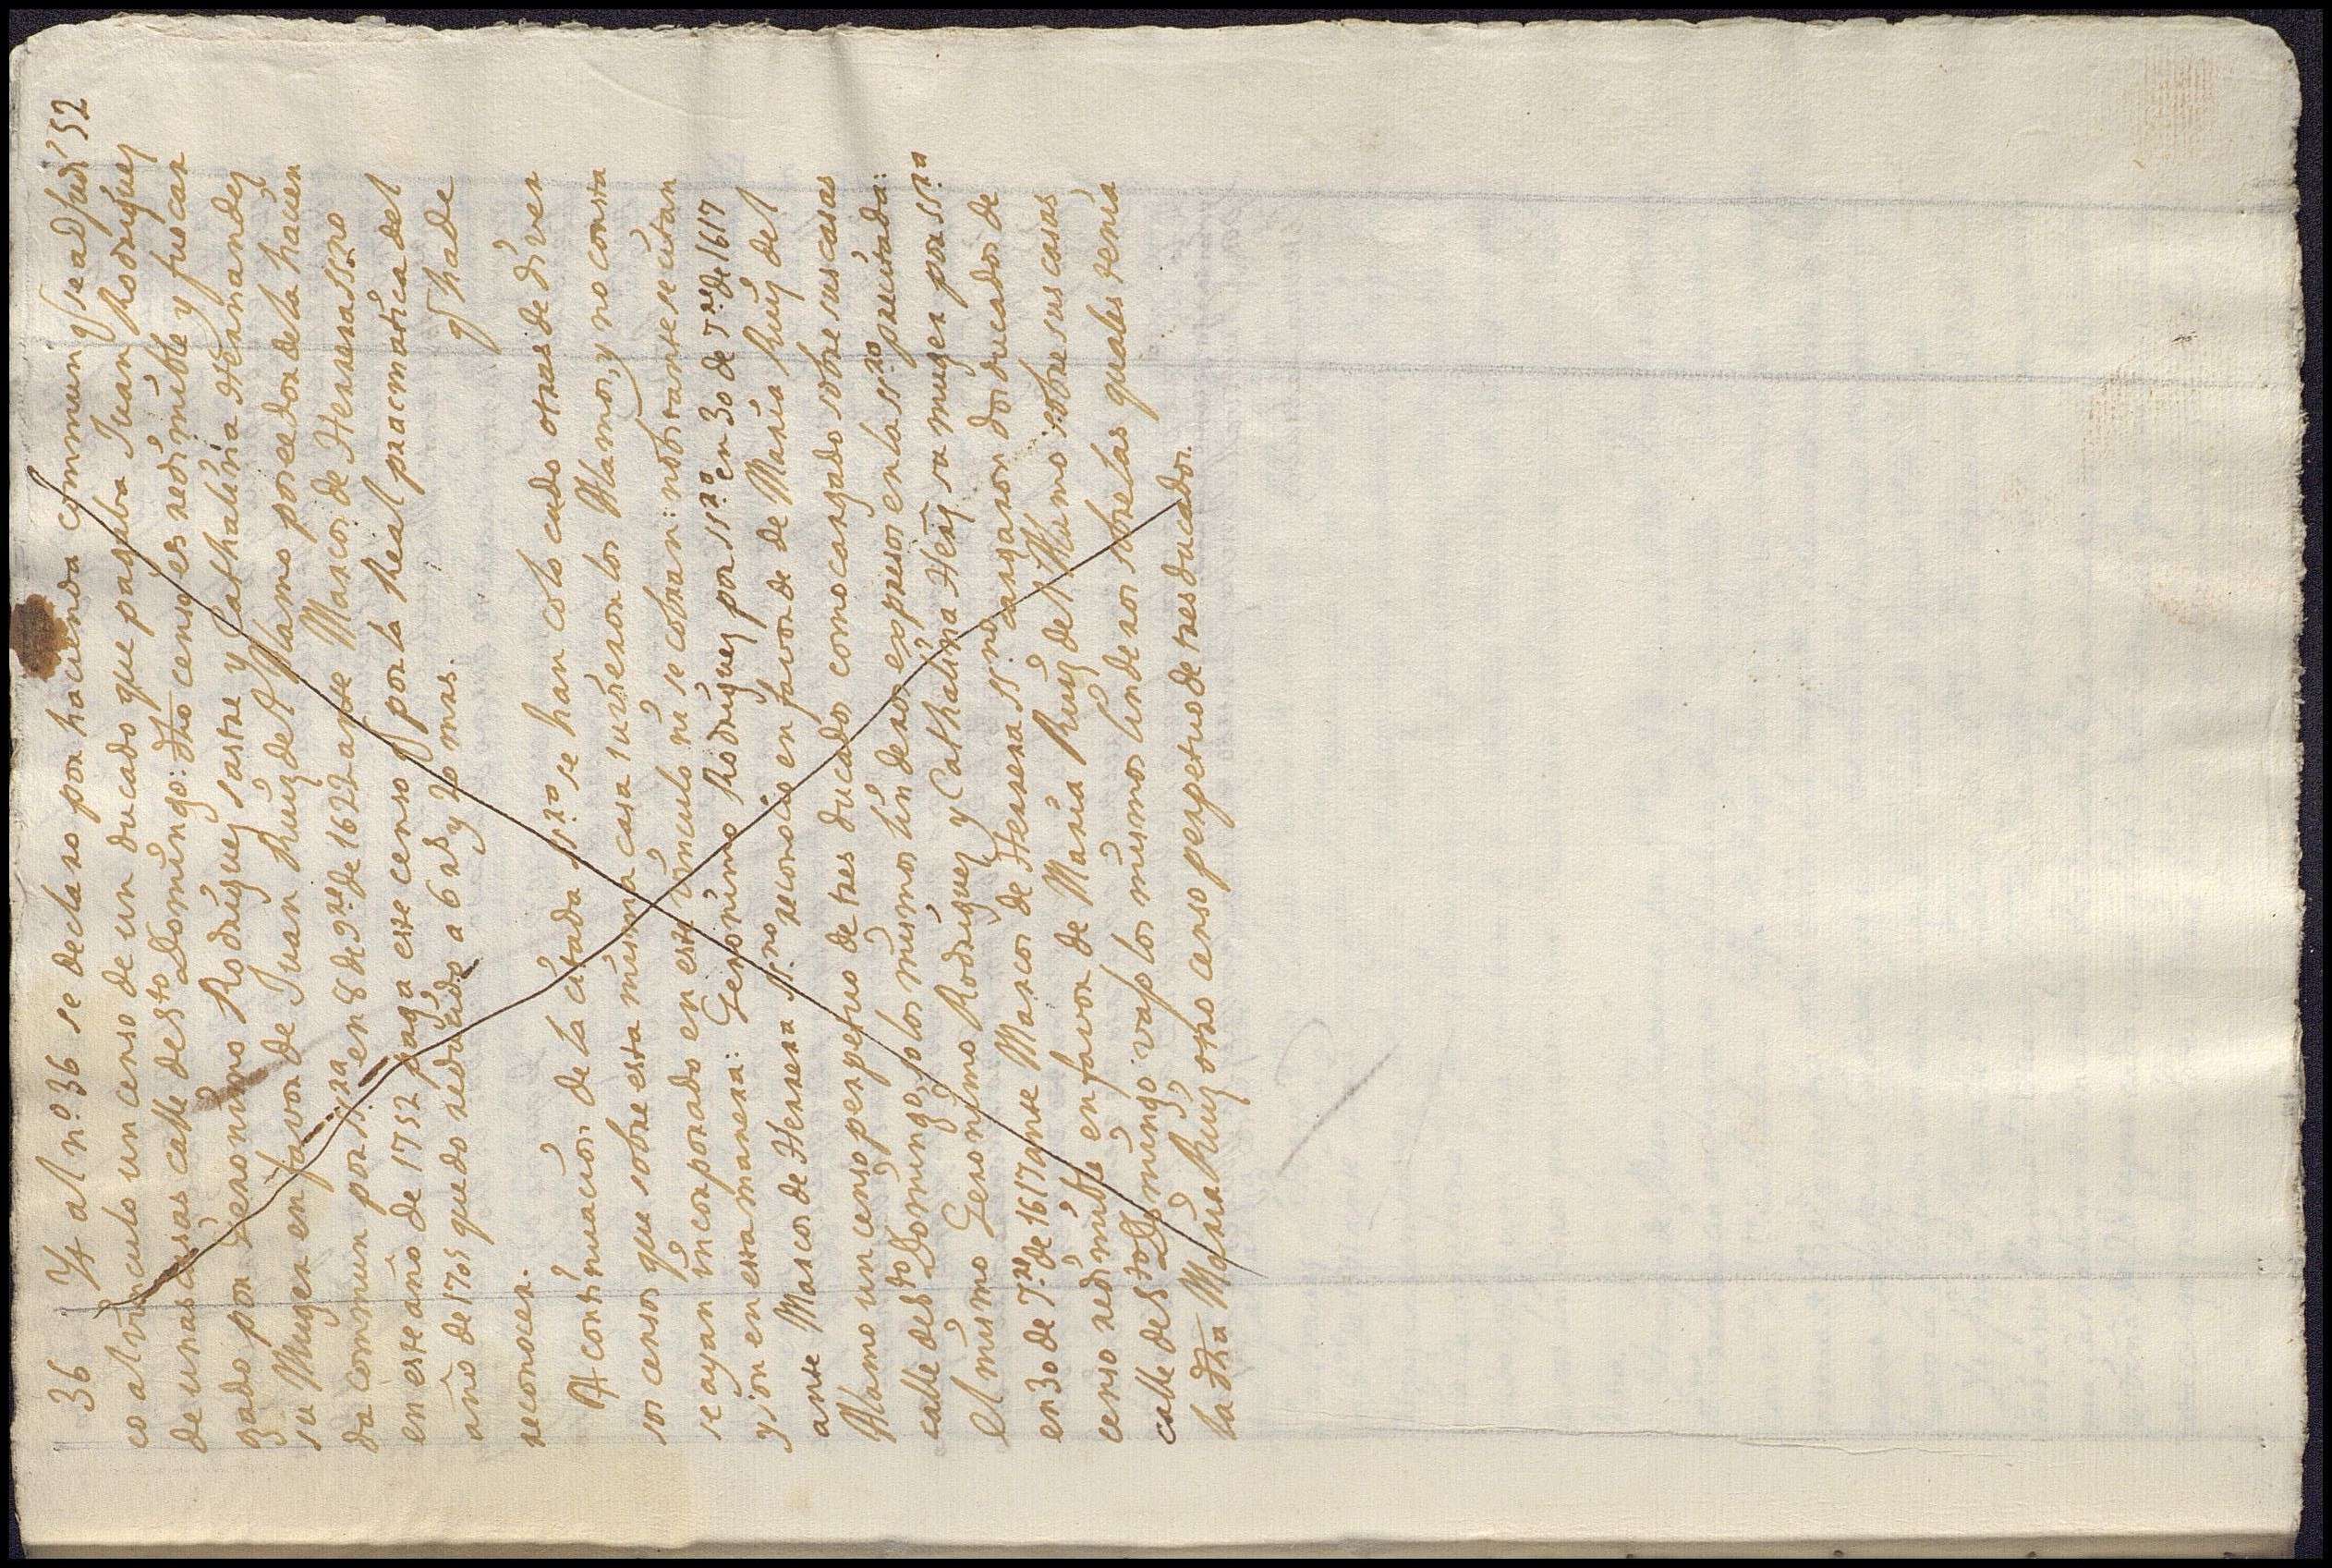 52
36 Yt al n.º 36 se declaro por hacienda commun q̃ se adjudi
co al vinculo un censo de un ducado que pagaba Juan Rodriguez
de unas casas calle de S.to Domingo: dho censo es redimible y fue car
gado por Geronimo Rodriguez sastre y Cathalina Hernandez
su Muger en favor de Juan Ruiz del Alamo posedor de la hacien
da commun por ss.ra en 8 de 9.re de 1622 ante Marcos de Herrera ss.no
en este año de 1752 paga este censo q̃ por la Real pracmatica del
año de 1705 quedo reducido a 6 rs y 20 mrs. q̃ ha de
reconocer.
A continuacion de la citada ss.ra se han colocado otras de diver
sos censos que sobre esta misma casa tuvieron los Alamos, y no consta
se ayan incorporado en este vinculo ni se cobran: nobstante se citan
y son en esta manera: Geronimo Rodriguez por ss.ra en 30 de 7.re de 1617
ante Marcos de Herrera ss.no reconocio en favor de Maria Ruiz del
Alamo un censo perpetuo de tres ducados como cargado sobre sus casas
calle de S.to Domingo, so los mismos linderos expresos en la ss.ra precitada:
el mismo Geronimo Rodriguez y Cathalina Herz su muger por ss.ra
en 30 de 7.re de 1617 ante Marcos de Herrera ss.no cargaron dos ducados de
censo redimible en favor de Maria Ruiz del Alamo sobre sus casas
calle de S.to Domingo vajo los mismos linderos sobre las quales tenia
la dha Maria Ruiz otro censo perpetuo de tres ducados.